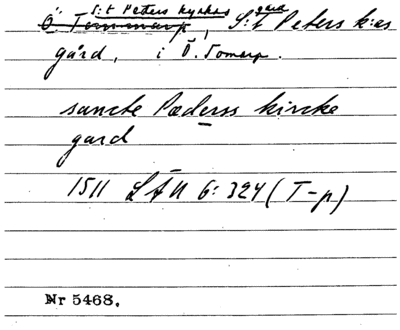 S:t Peters kyrkas gård
Ö. Tommarp, S:t Peters k:as
gård, i Ö. Tomarp.
sancte Pæderss kircke
gard
1511 LÄU 6: 324 (T-p)
Nr 5468.